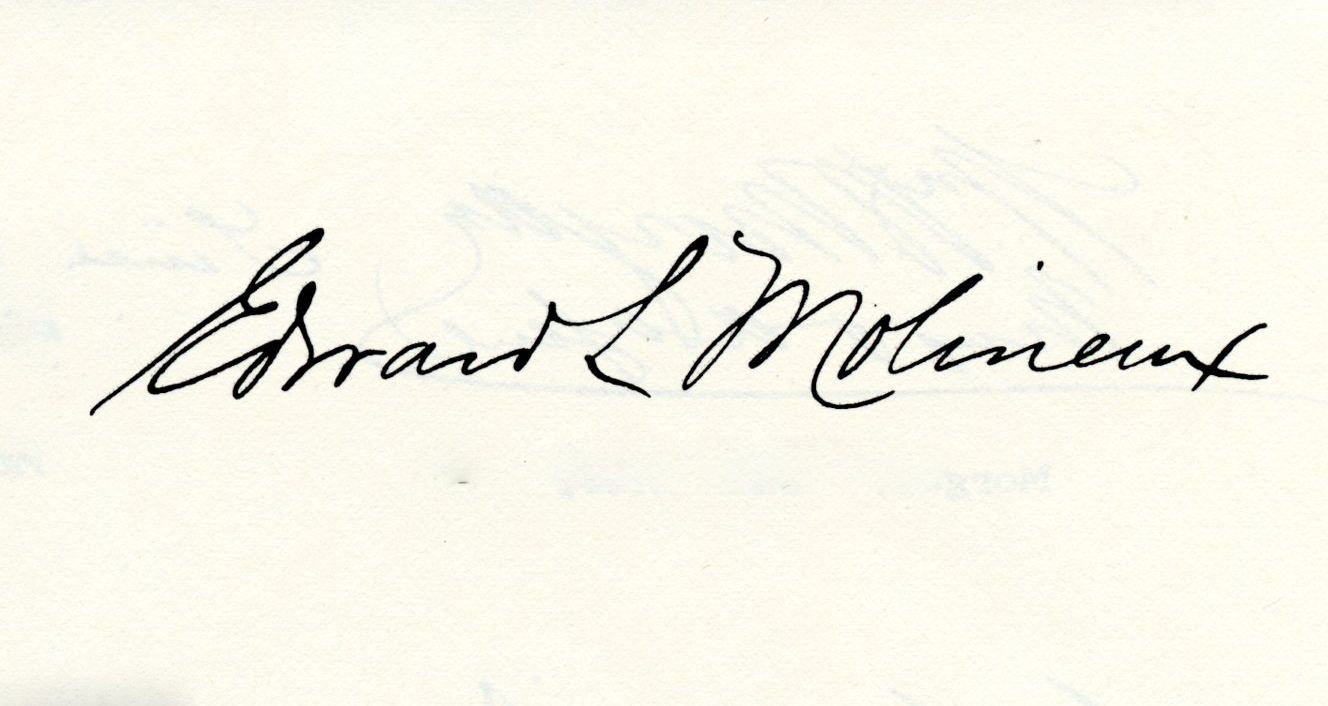 Edward L Molineux